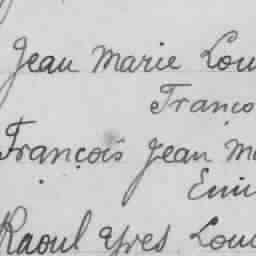 Jean Marie Lou
Franço
François Jean M
Emi
Raoul Yves Lou